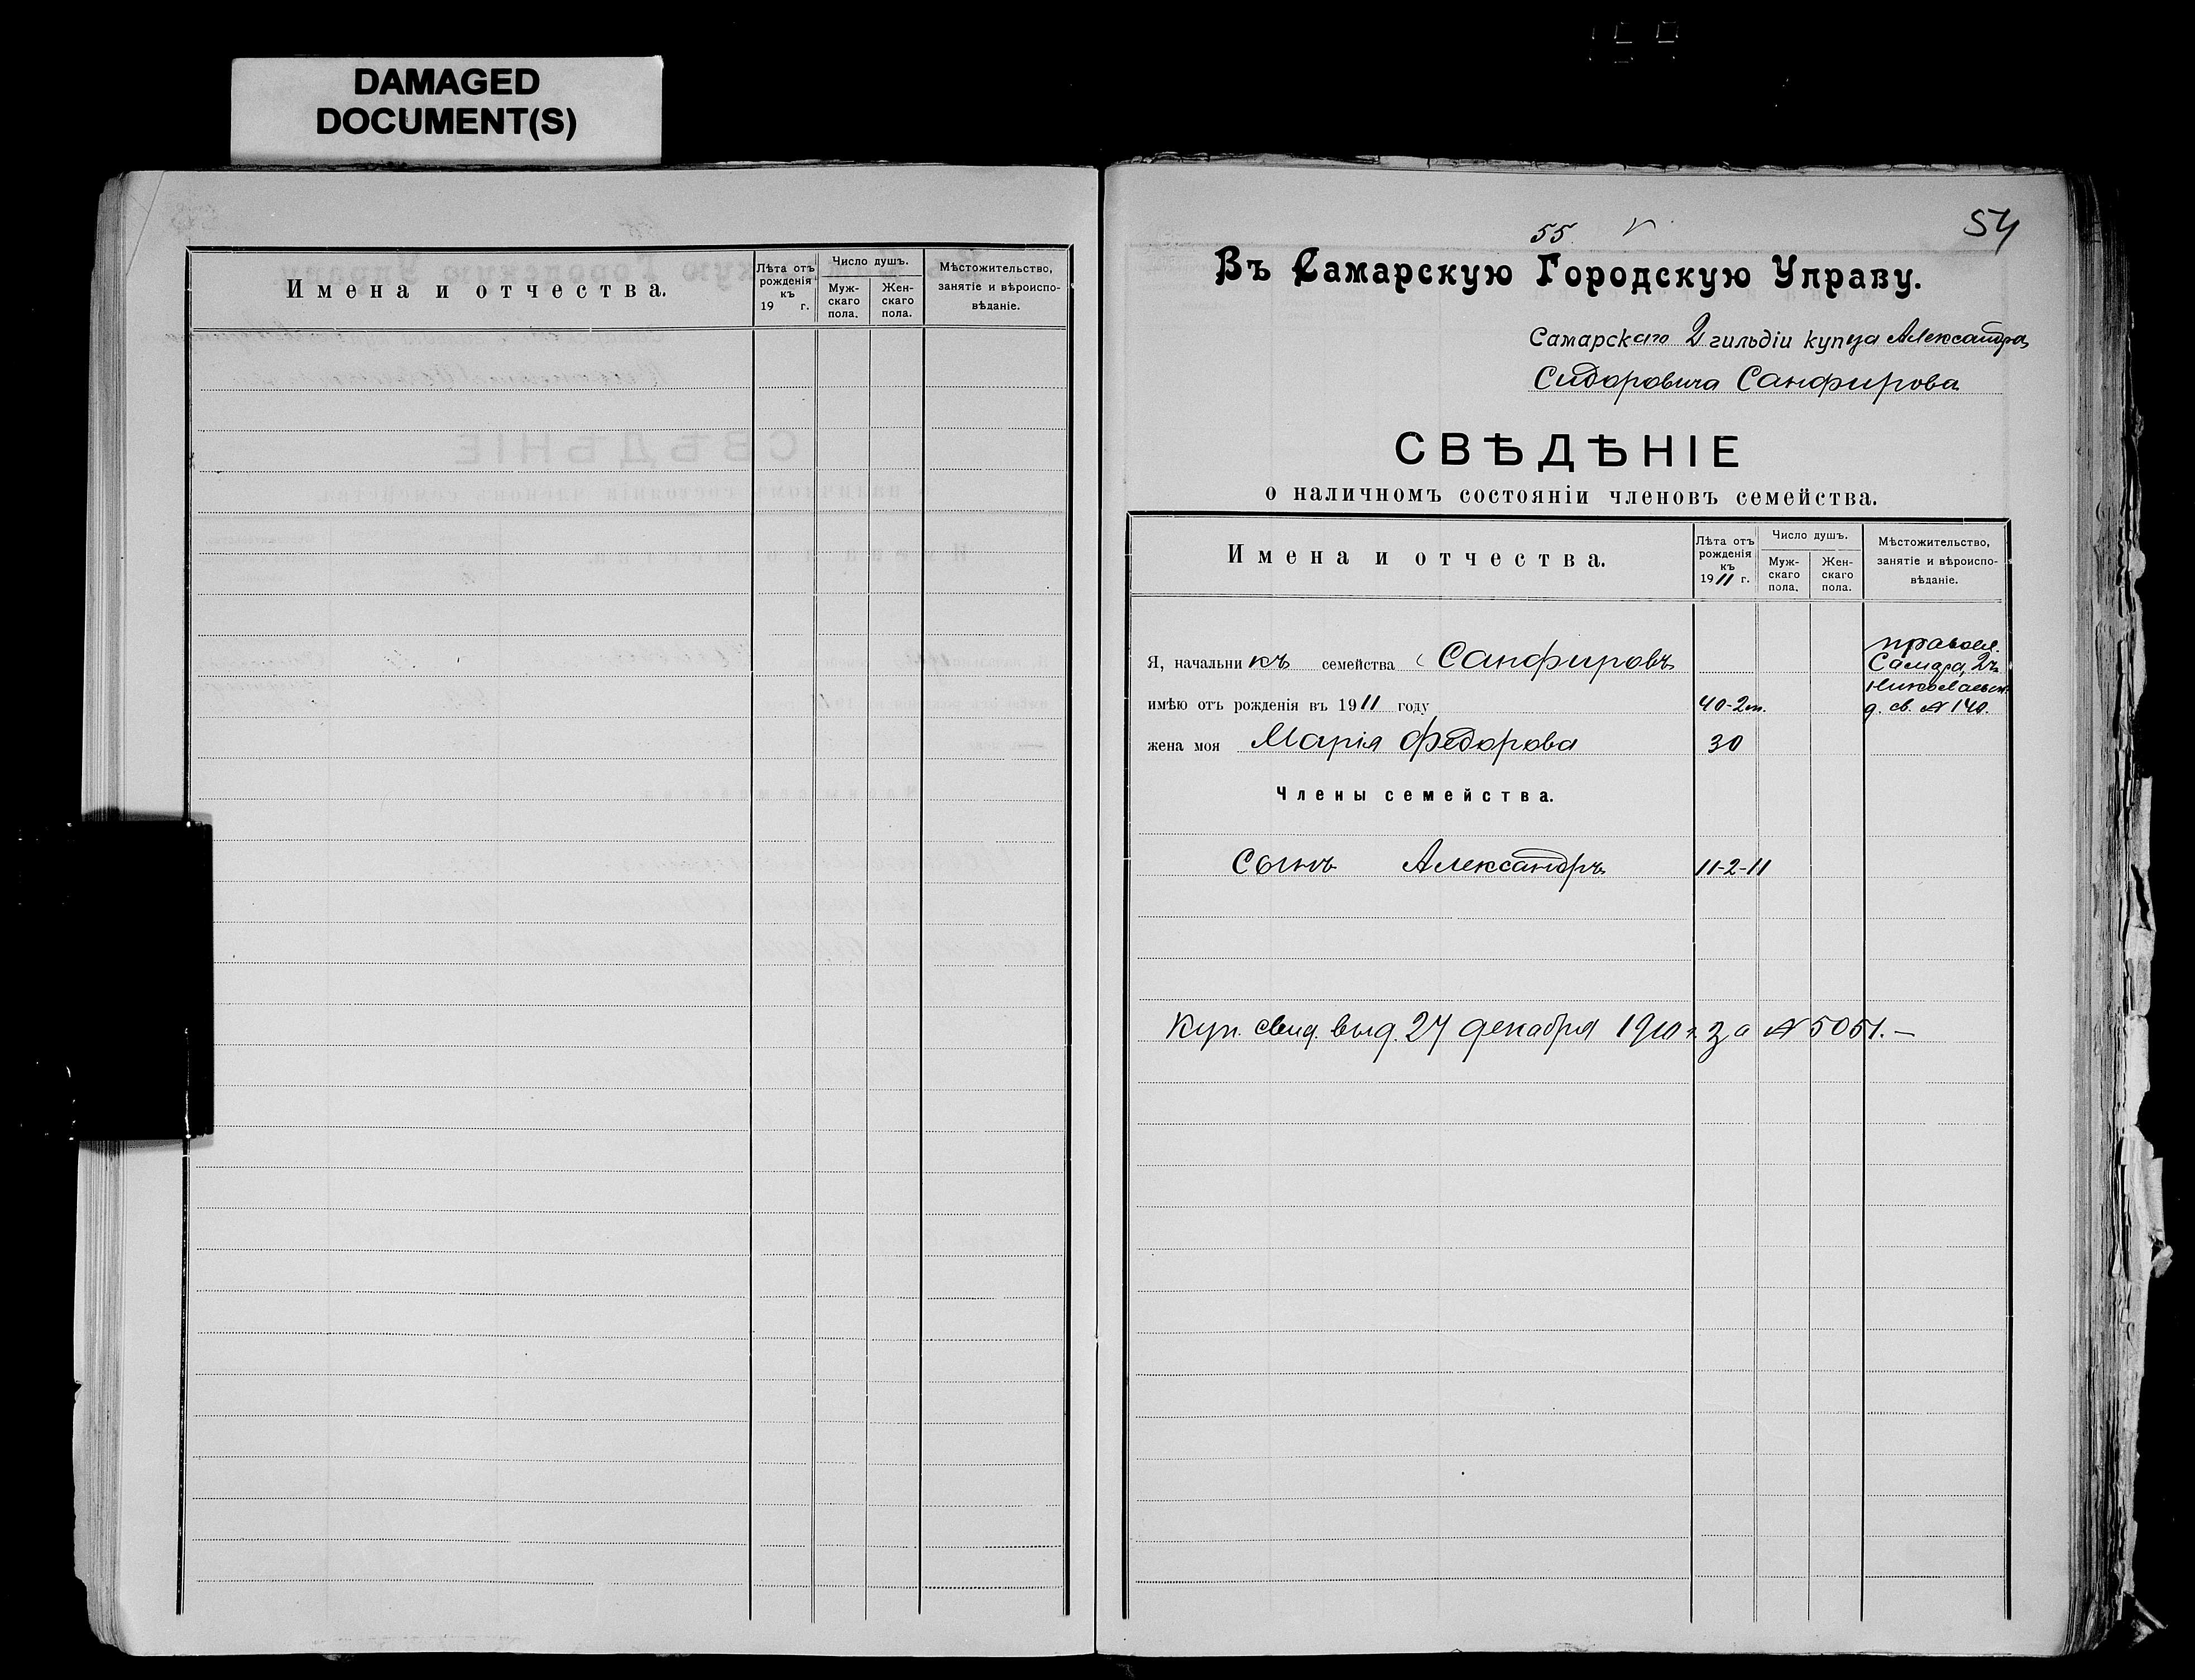 DAMAGED
DOCUMENT(S)
Имена и отчества.
Лѣта отъ рожденія къ 19 г.
Число душъ.
Мужскаго пола.
Женскаго пола.
Мѣстожительство, занятіе и вѣроисповѣданіе.
54
55
Въ Самарскую Городскую Управу.
Самарскаго 2 гильдіи купца Александра
Сидоровича Санфирова
СВѢДѢНІЕ
о наличномъ состояніи членовъ семейства.
Имена и отчества.
Лѣта отъ рожденія къ 1911 г.
Число душъ.
Мужскаго пола.
Женскаго пола.
Мѣстожительство, занятіе и вѣроисповѣданіе.
Я, начальникъ семейства Санфировъ
имѣю отъ рожденія въ 1911 году 40-2 m.
правосл.
Самара,
д. св. № 140.
жена моя Марія Федорова 30
Члены семейства.
Сынъ Александръ 11-2-11
Куп. свид. выд. 27 декабря 1910 г. за № 5051.—